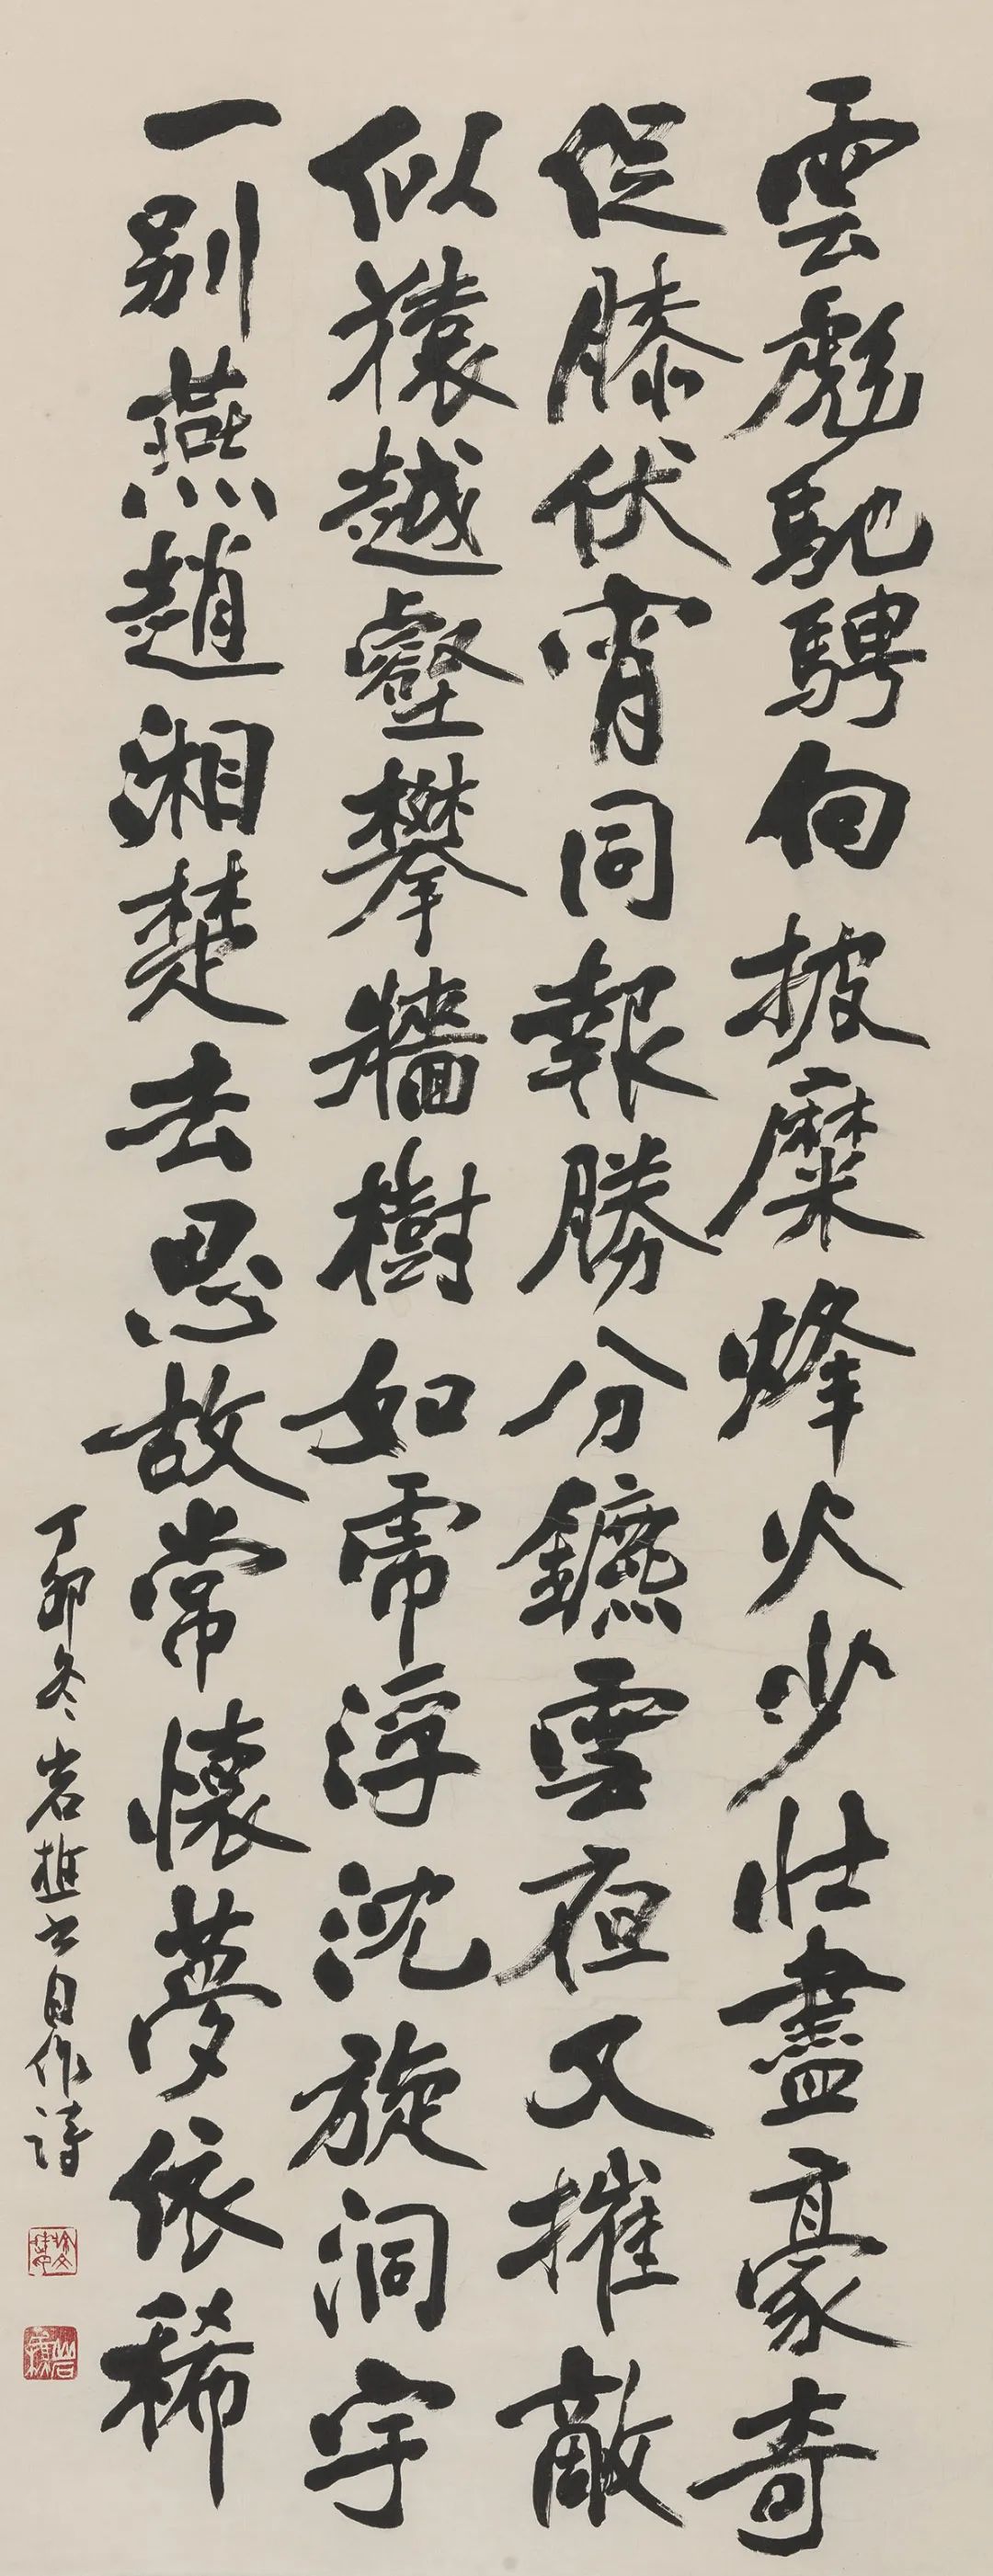 雲彪馳騁向披糜烽火少壯盡豪奇
促膝伏宵同報勝分鑣雪夜又摧敵
似猿越壑攀牆樹如浮沈旋洞宇
一別燕趙湘楚去思故常懷夢依稀
丁卯冬岩樵書自作詩
岩樵